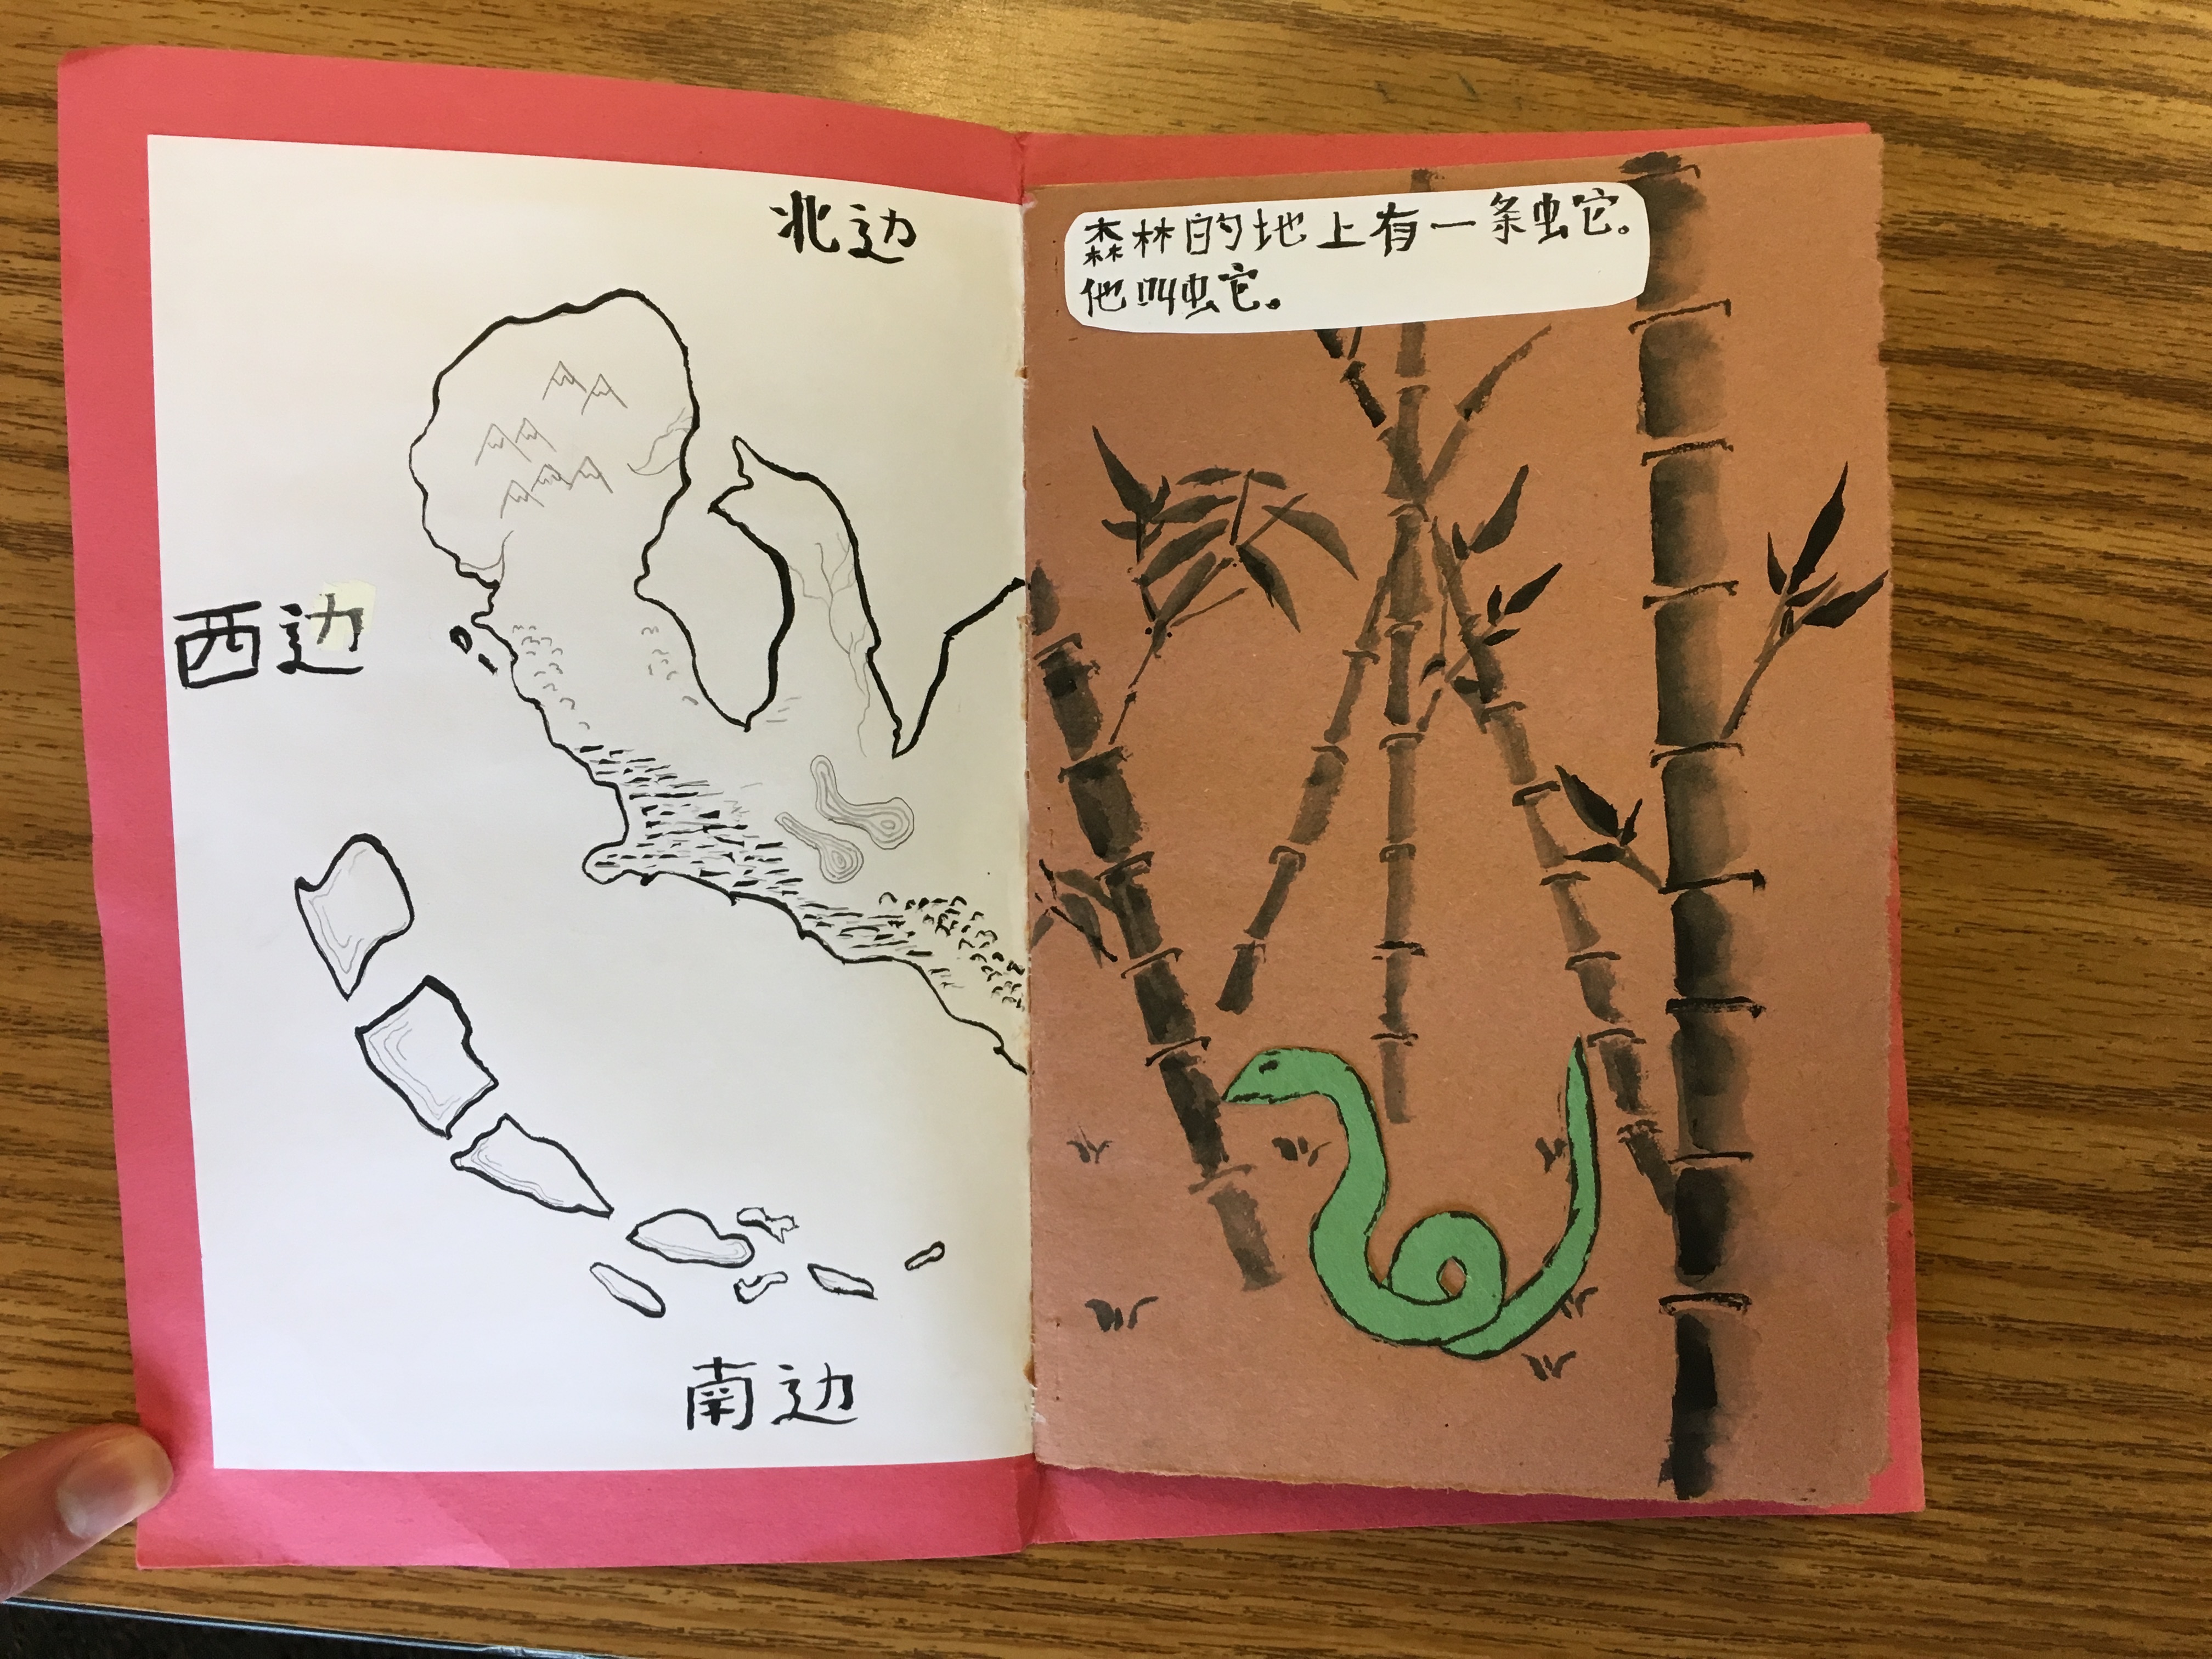 北边
西边
南边
森林的地上有一条蛇。
他叫蛇。